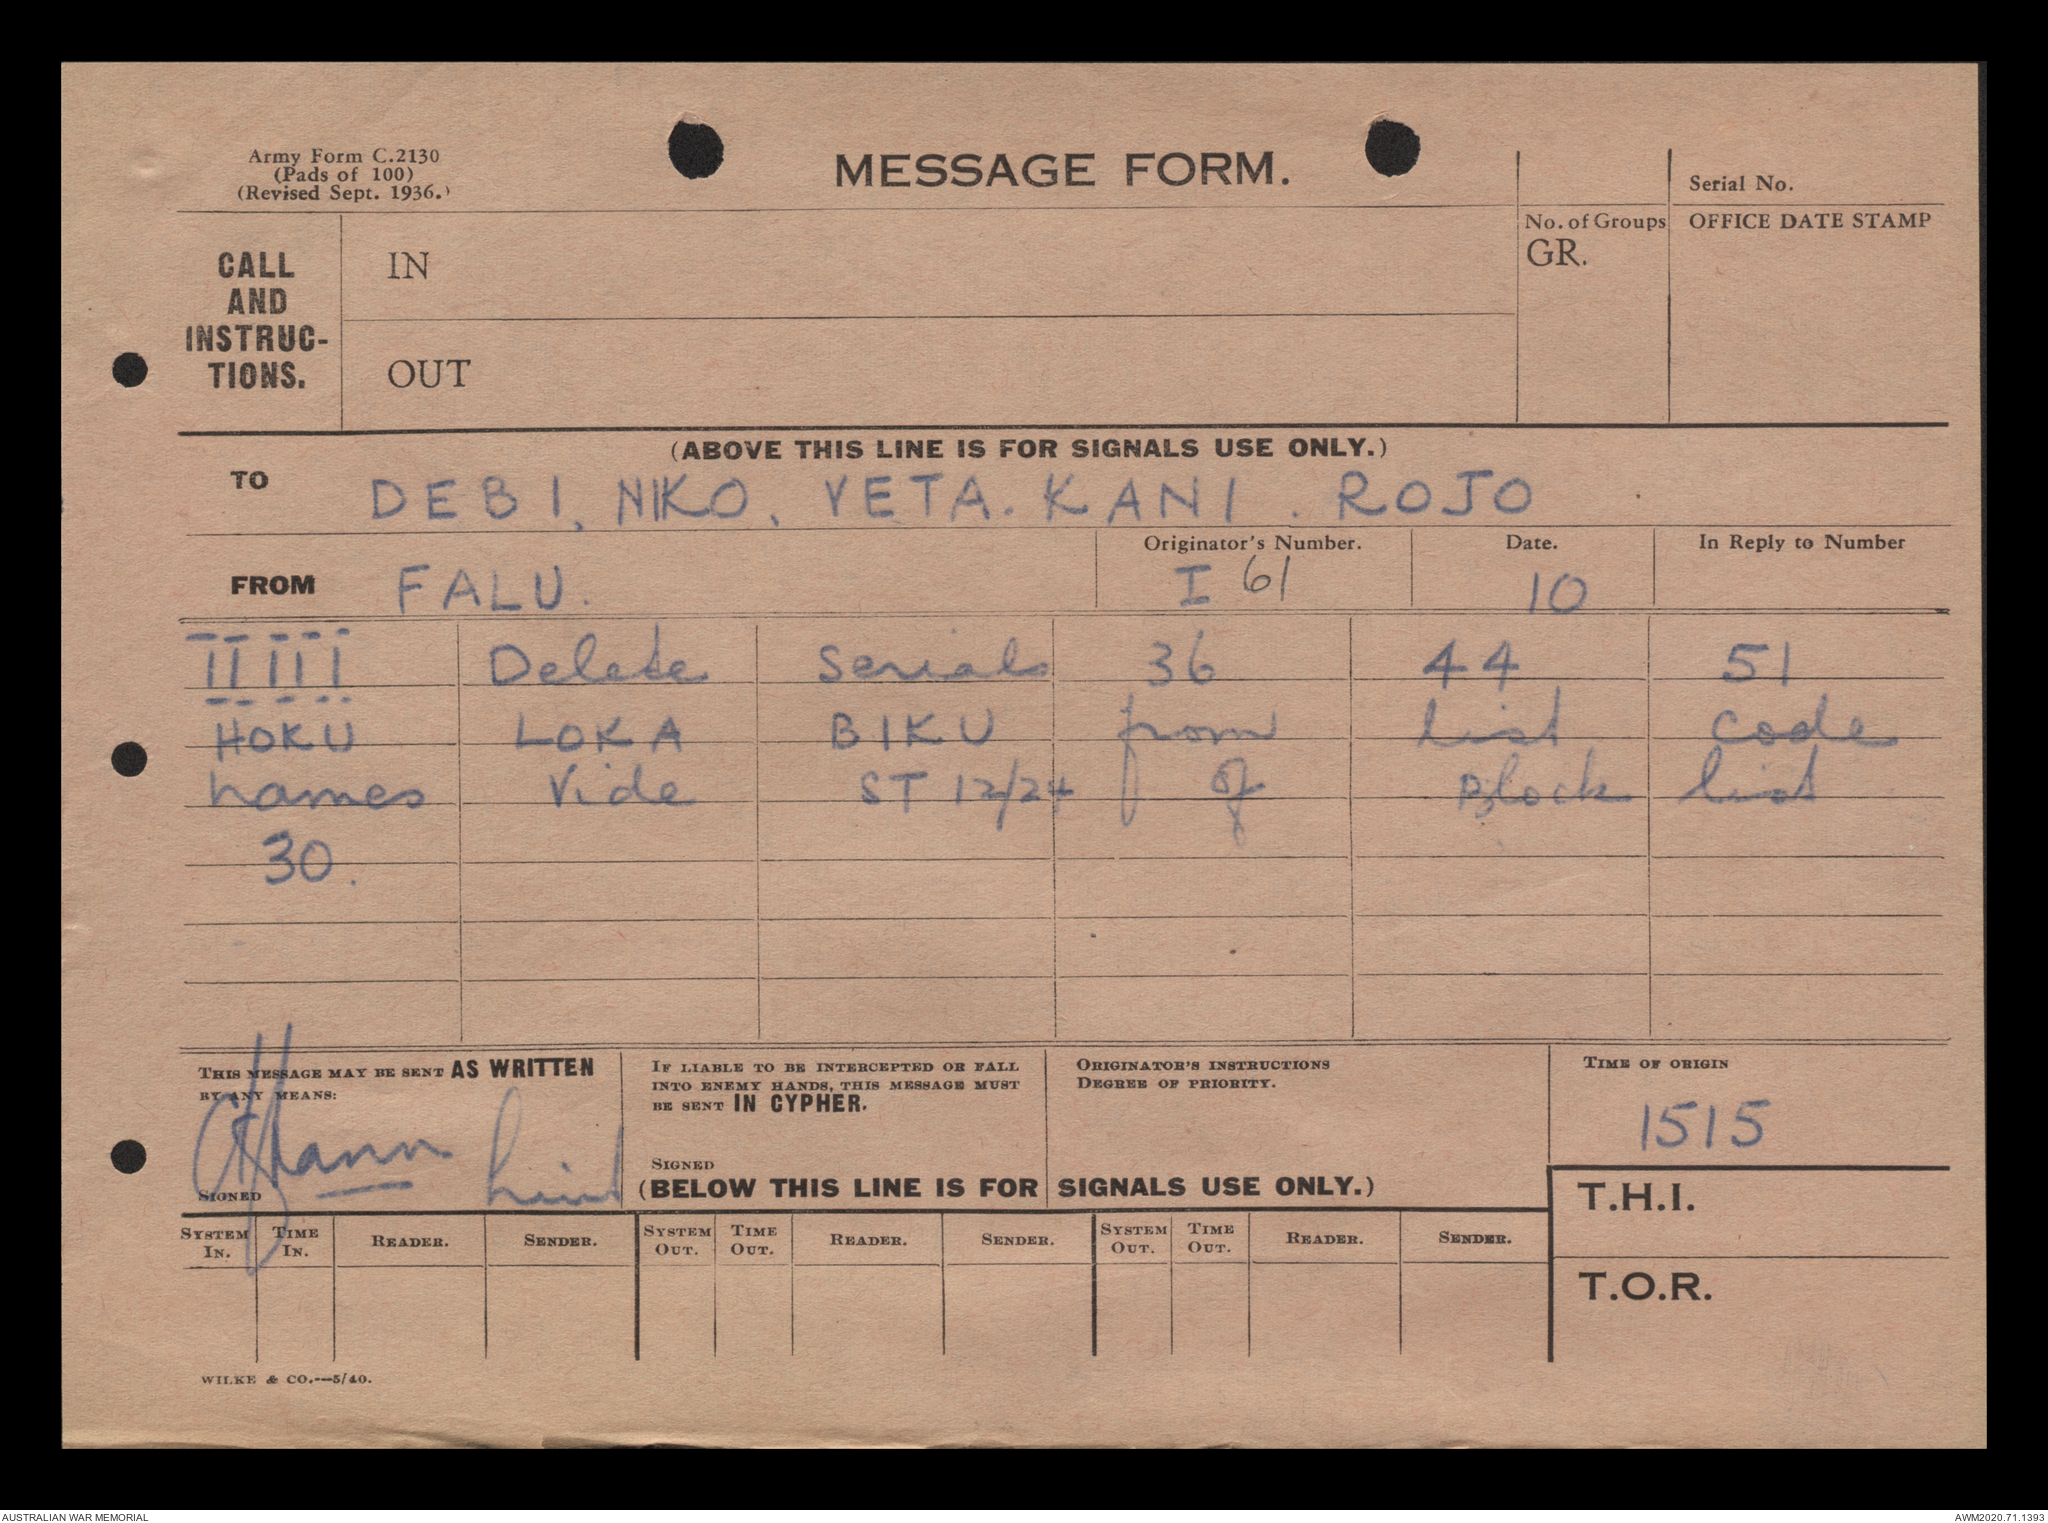 Army Form C.2130
(Pads of 100)
(Revised Sept. 1936.)
MESSAGE FORM.
Serial No.
CALL
AND
INSTRUC-
TIONS.
IN
OUT
No. of Groups
GR.
OFFICE DATE STAMP
(ABOVE THIS LINE IS FOR SIGNALS USE ONLY.)
TO DEBI, NIKO, VETA. KANI. ROJO
Originator's Number. Date. In Reply to Number
FROM FALU. I 61 10
IIIII Delete Serials 36 44 51
HOKU LOKA BIKU from list code
names vide ST 12/24 of Block list
30.
THIS MESSAGE MAY BE SENT AS WRITTEN
BY ANY MEANS:
SIGNED
IF LIABLE TO BE INTERCEPTED OR FALL
INTO ENEMY HANDS, THIS MESSAGE MUST
BE SENT IN CYPHER.
SIGNED
ORIGINATOR'S INSTRUCTIONS
DEGREE OF PRIORITY.
TIME OF ORIGIN
1515
(BELOW THIS LINE IS FOR SIGNALS USE ONLY.)
T.H.I.
SYSTEM IN. TIME IN. READER. SENDER. SYSTEM OUT. TIME OUT. READER. SENDER. SYSTEM OUT. TIME OUT. READER. SENDER.
T.O.R.
WILKE & CO.—5/40.
AUSTRALIAN WAR MEMORIAL
AWM2020.71.1393